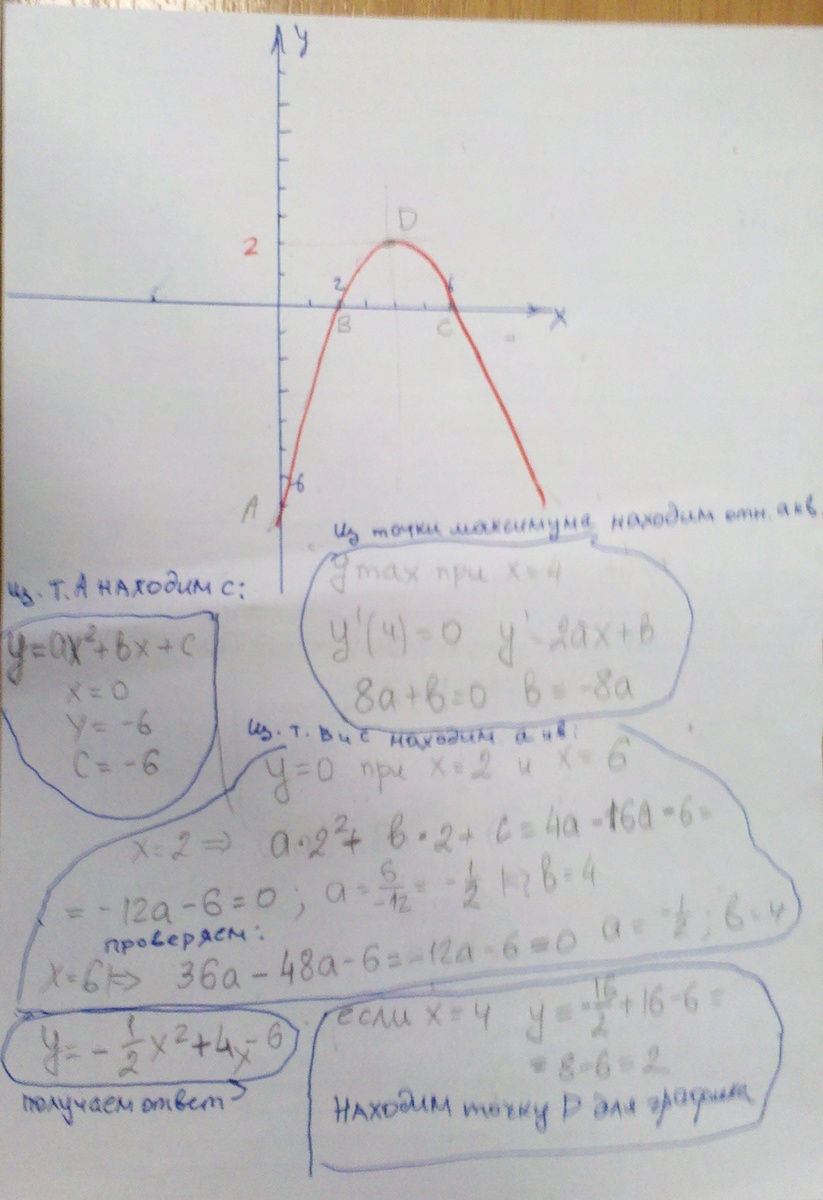 y
D
2
2
6
B
C
x
-6
A
из точки максимума находим отн. а и в
y max при x = 4
y'(4) = 0 y' = 2ax + в
8a + в = 0 в = -8a
из. т. А находим с:
y = ax² + вx + c
x = 0
y = -6
c = -6
из. т. в и с находим а и в:
y = 0 при x = 2 и x = 6
x = 2 ⇒ a·2² + в·2 + c = 4a - 16a - 6 =
= -12a - 6 = 0 ; a = 6/-12 = -1/2 ↦ в = 4
проверяем:
x = 6 ↦ 36a - 48a - 6 = -12a - 6 = 0 a = -1/2 ; в = 4
y = -1/2 x² + 4x - 6
получаем ответ
если x = 4 y = -16/2 + 16 - 6 =
= 8 - 6 = 2
находим точку D для графика